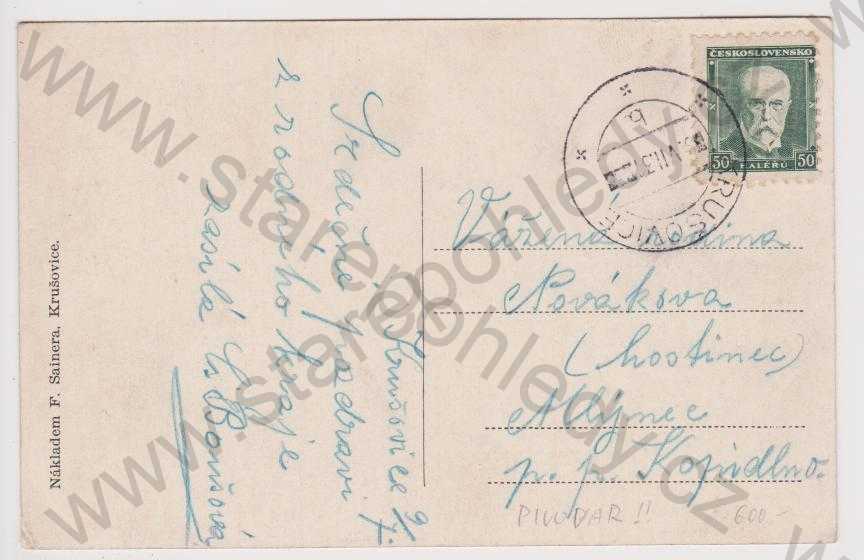 Krušovice 9/7.
Srdečné pozdravy
z rodného kraje
zasílá
Nákladem F. Sainera, Krušovice.
ČESKOSLOVENSKO
50 HALÉŘŮ 50
KRUŠOVICE
b
Vážená rodina
Novákova
(hostinec)
Mlýnec
p. p. Kopidlno.
PIVOVAR !!
600-
www.starepohledy.cz
www.starepohledy.cz
www.starepohledy.cz